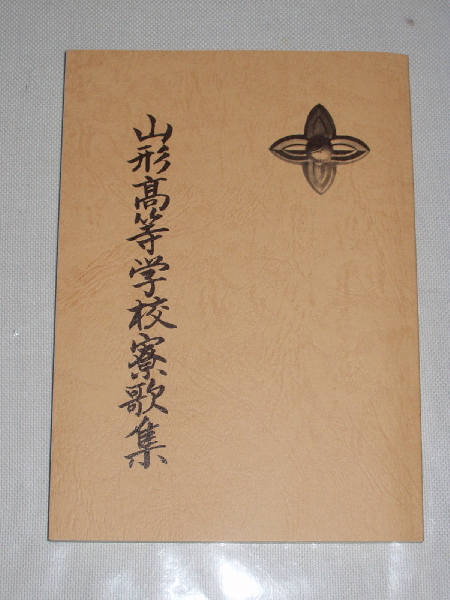 山形髙等学校寮歌集